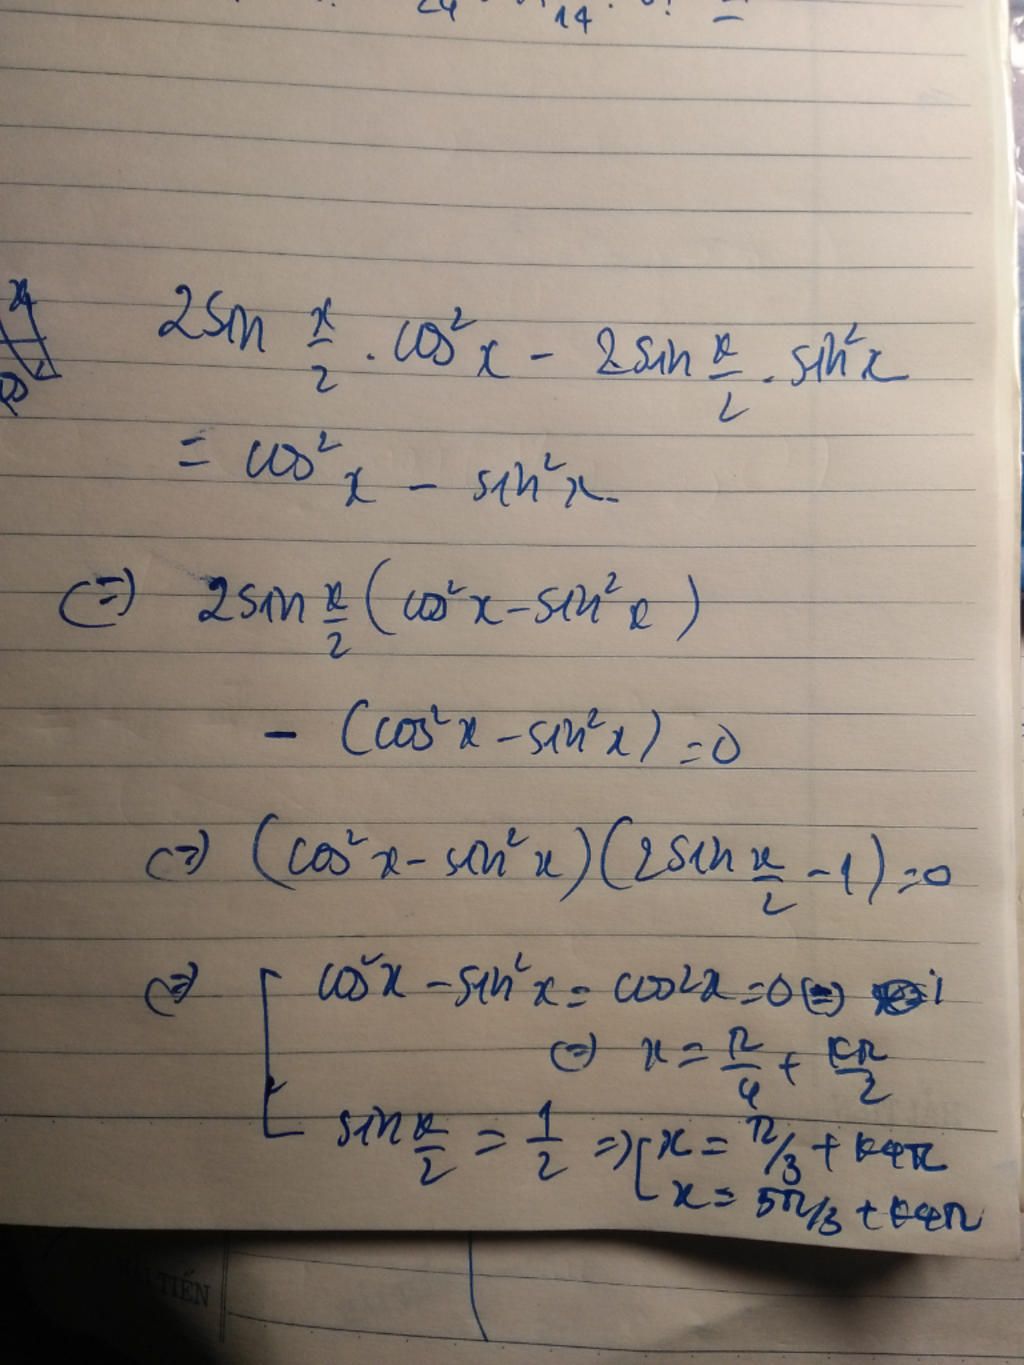 14
2sin x/2 . cos²x - 2sin x/2 . sin²x
= cos²x - sin²x.
(=) 2sin x/2 (cos²x - sin²x)
- (cos²x - sin²x) = 0
(=) (cos²x - sin²x)(2sin x/2 - 1) = 0
(=) [ cos²x - sin²x = cos2x = 0 (=)
(=) x = π/4 + kπ/2
sin x/2 = 1/2 => [ x = π/3 + k4π
x = 5π/3 + k4π
TIẾN